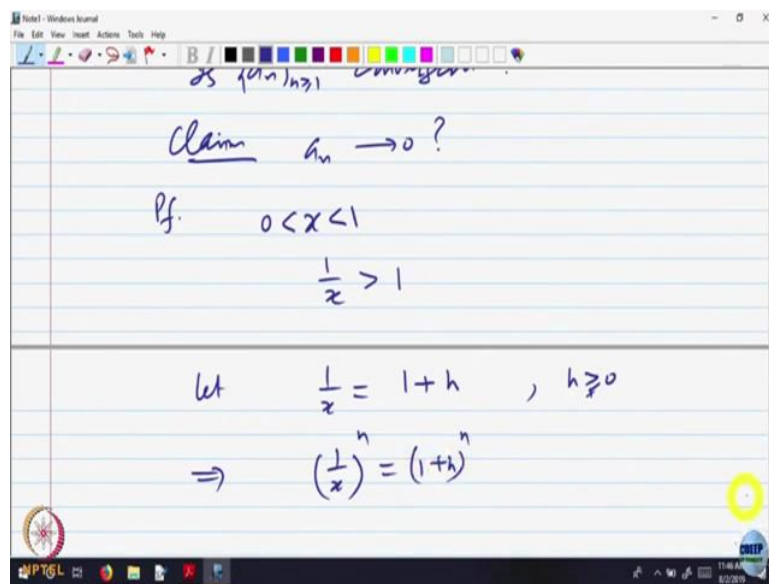 Note1 - Windows Journal
File Edit View Insert Actions Tools Help
B I
Is {an}n≥1 convergent ?
Claim an → 0 ?
Pf. 0 < x < 1
1/x > 1
let 1/x = 1 + h , h ≥ 0
⇒ (1/x)^n = (1 + h)^n
NPTEL
CDEEP
11:46 AM
8/2/2019